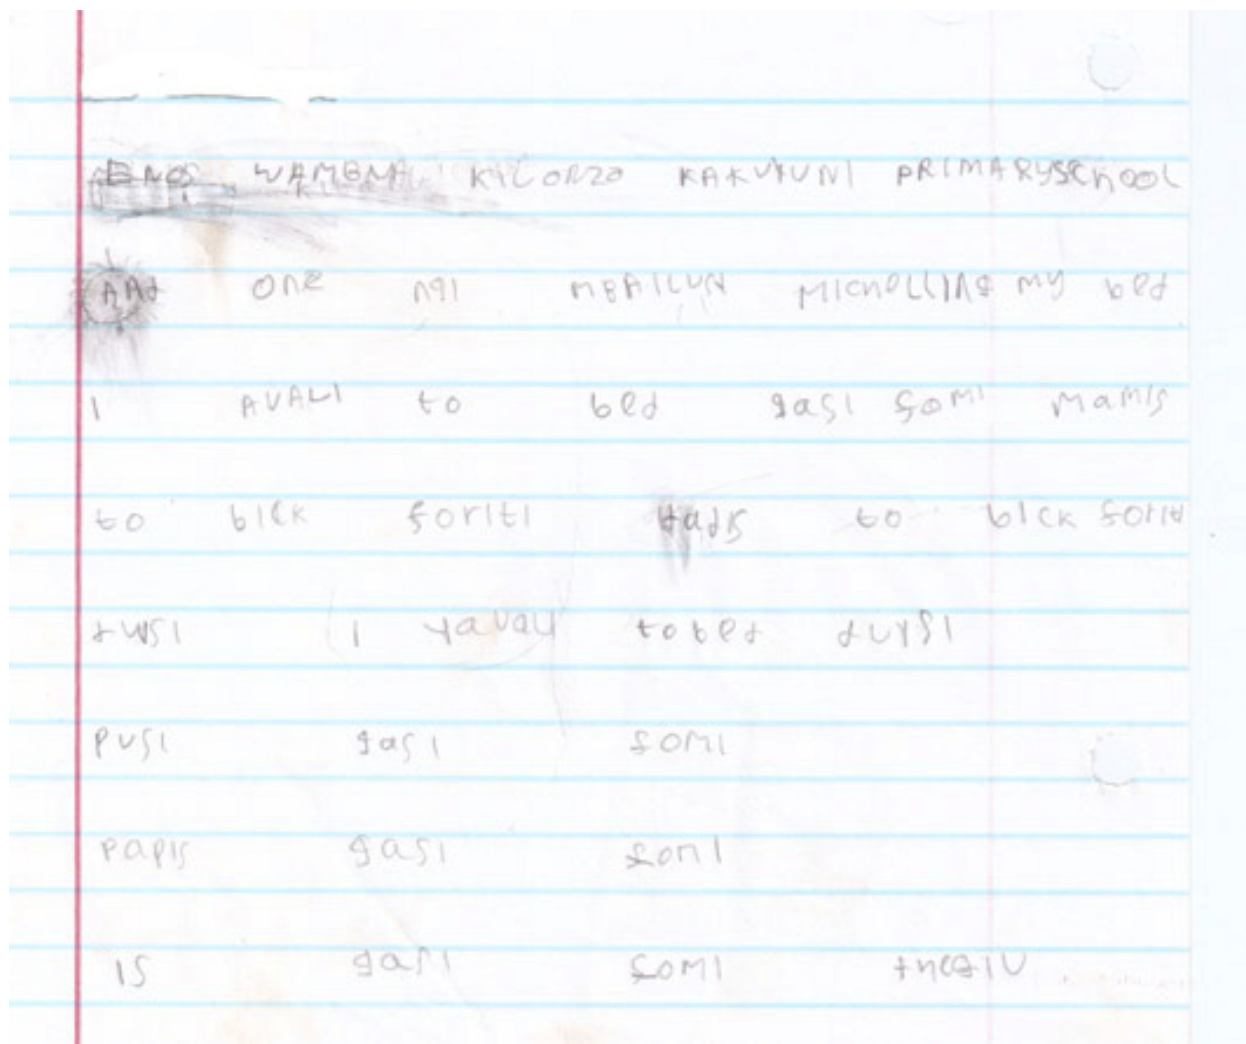 ENOS WAMBNA KILONZO KAKUYUNI PRIMARYSCHOOL
ONE NGI MBAILUN MICHOLLING MY bed
I AVALI to bed gasi fomi mamis
to bick foriti tadis to bick forit
I yavali to bed duysi
pusi gasi fomi
papis gasi fomi
is gasi fomi